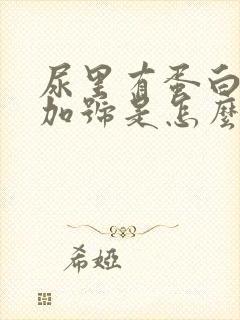 尿里有蛋白
加號是怎麼
希婭